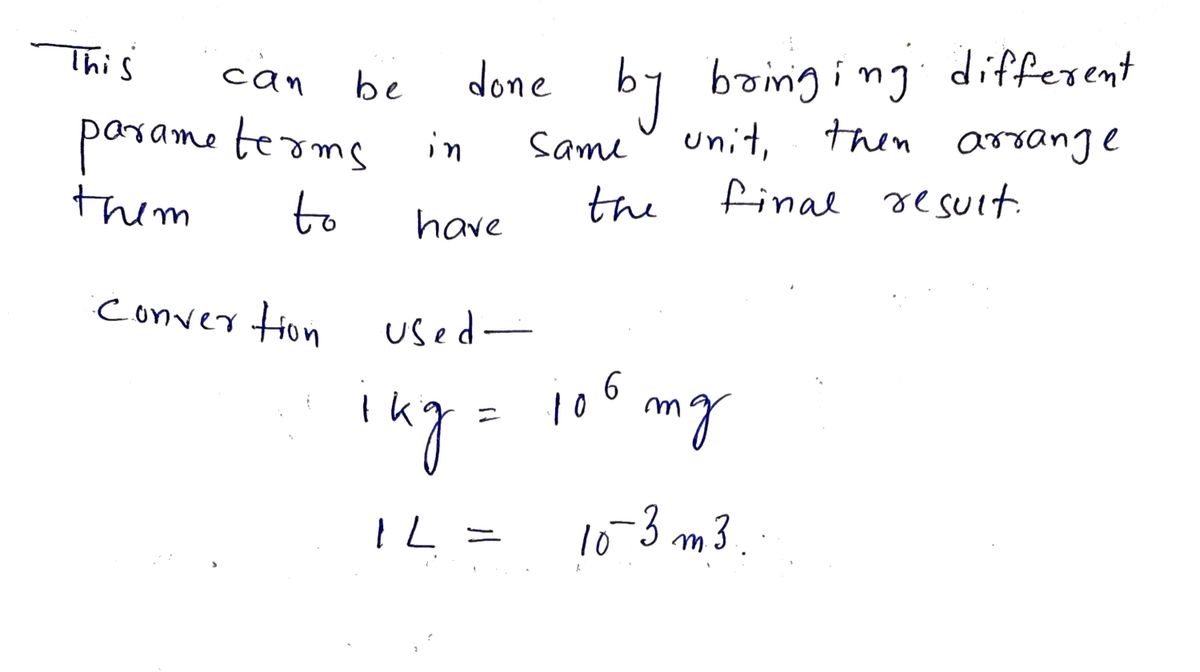 This can be done by bringing different
parameterms in same unit, then arrange
them to have the final result.
Convertion used—
1 kg = 10⁶ mg
1 L = 10⁻³ m3.